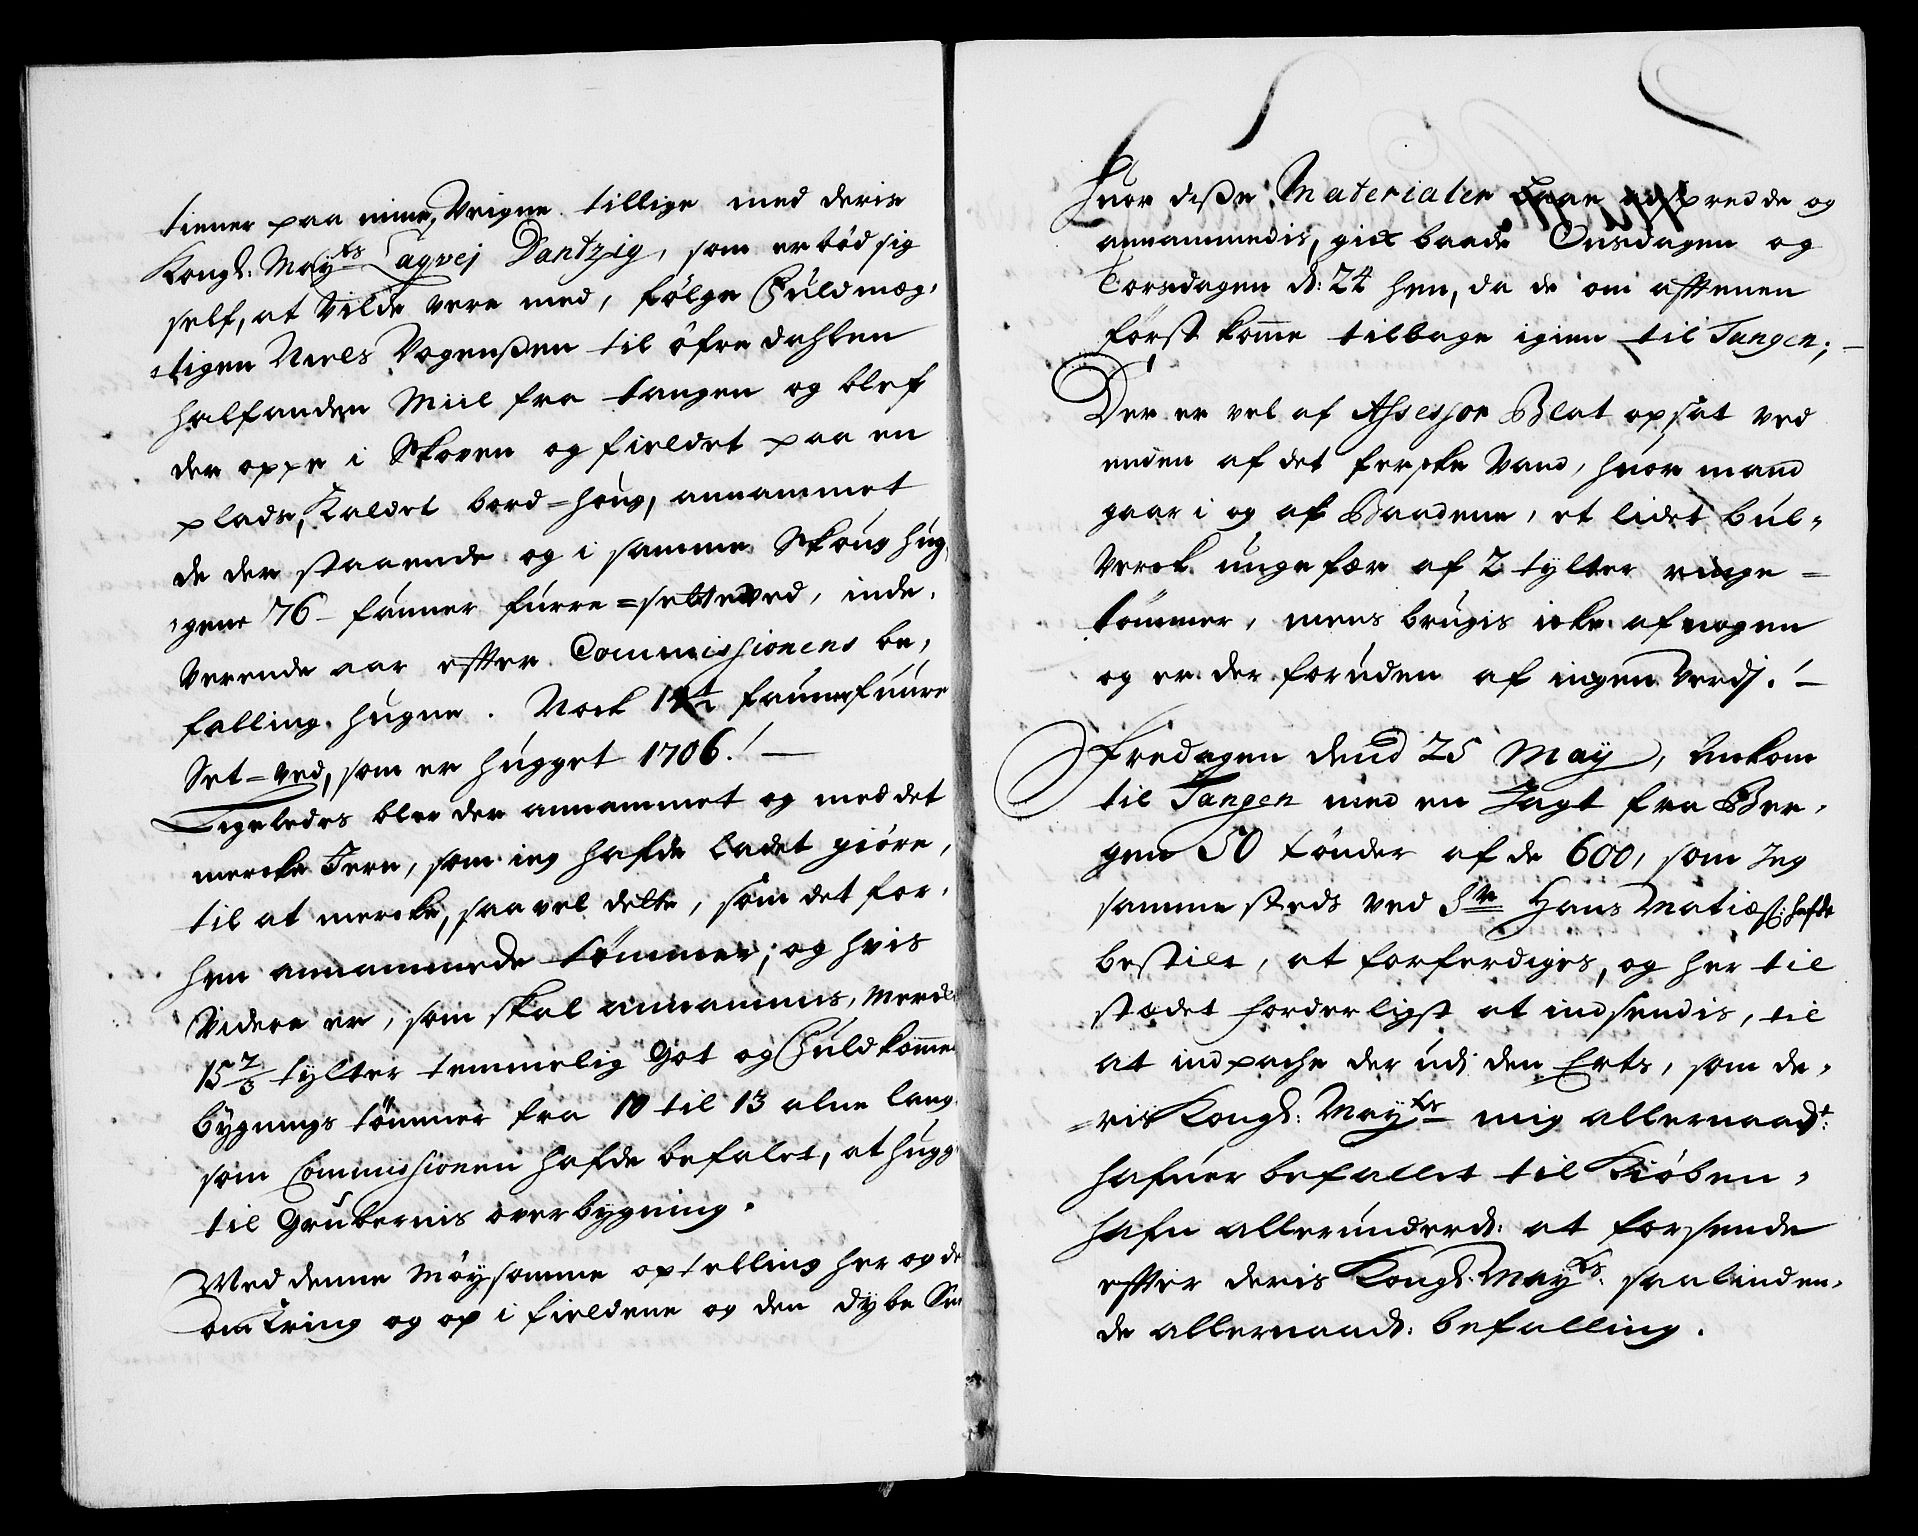 tiener paa mine Veigne tillige med deris
Kongl: Mayts Laqvej Dantzig, som erbød sig
self, at vilde vere med, følge Fuldmæg-
tigen Niels Vogenßen til øfre dahlen
halfanden Miil fra tangen og blef
der oppe i Skoven og fieldet paa en
plads, Kaldet bord=hous, annammet
de der staaende og i samme Skoug hug-
gene 76 faüner fürre=setteved, inde-
verende aar efter Commissionens be-
falling hugne. Nock 14½ faüner fuure
Set=ved, som er hugget 1706.! —
Ligeledes blev der annammet og med det
mercke Jern, som ieg hafde Ladet giöre,
til at mercke, saavel dette, som det for-
hen annammede tømmer; og hvis
Videre er, som skal annammis,
15 2/3 tylter temmelig got og Fuldkommen
bygnings tömmer fra 10 til 13 alne lang
som Commissionen hafde befalet, at hugge
til Grubernis overbygning.
Med denne Møysomme optelling her og der
omkring og op i fieldene og den dybe Snee
Huor diße Materialer vaare adspredde og
annammedis, gick baade Onsdagen og
Torsdagen d: 24 hen, da de om afftenen
först komme tilbage igien til Tangen; —
Der er vel af Assessor Blat opsat ved
enden af det fercke Vand, huor mand
gaar i og af Baadene, et lidet bul-
verck ungefær af 2 tylter ringe =
tömmer, mens brugis icke af nogen
og er der foruden af ingen Verdj.! —
Fredagen dend 25 May, Ankom
til Tangen med en Jagt fra Ber-
gen 50 tönder af de 600, som Jeg
sammesteds ved Hr Hans Matiæß: hafde
bestilt, at forferdiges, og her til
stædet forderligst at indsendis, til
at indpache der udj den Erts, som de-
=ris Kongl: Mayts mig allernaadt:
hafuer befallet til Kiöben-
hafn allerunderd: at forsende
effter deris Kongl: Mayts: saaliuden-
de allernaad: befalling.